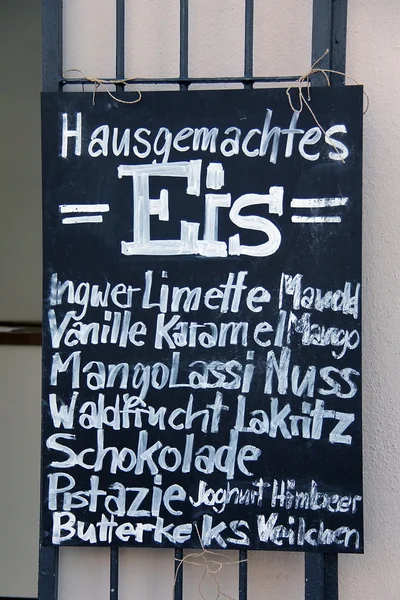 Hausgemachtes
= Eis =
Ingwer Limette
Vanille Karamel Mango
MangoLassi Nuss
Waldfrucht Lakritz
Schokolade
Pistazie Joghurt Himbeer
Butterkeks Veilchen